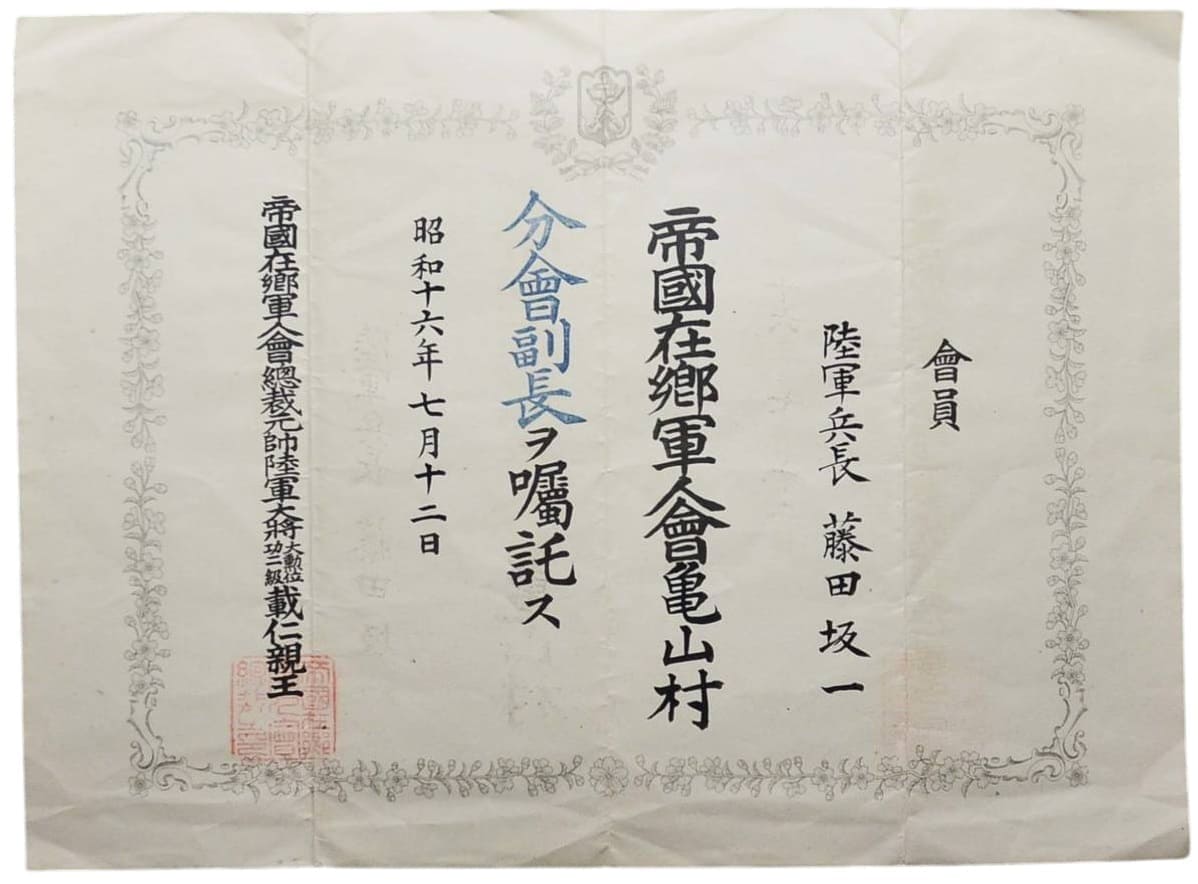 會員
陸軍兵長 藤田坂一
帝國在鄕軍人會亀山村
分會副長ヲ囑託ス
昭和十六年七月十二日
帝國在鄕軍人會總裁元帥陸軍大將大勲位功二級載仁親王